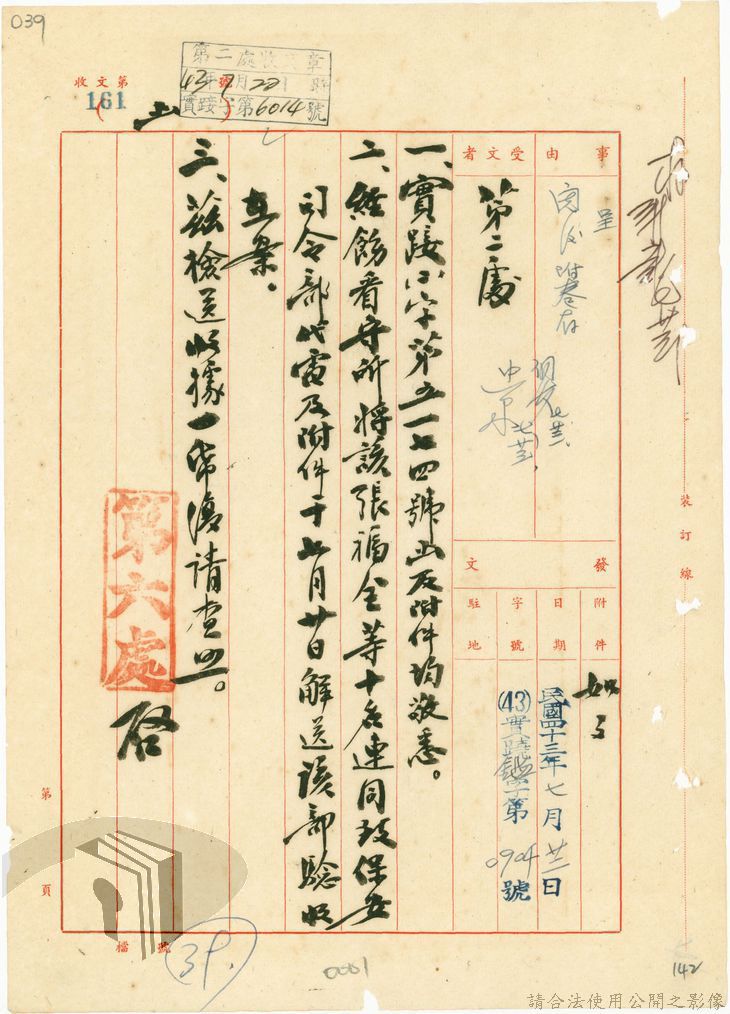 039
第二處收文章
43年7月22日 時
實踐字第6014號
收文第
161
號
事由
受文者
第二處
呈
閱後附卷存
發文
附件
如文
日期
民國四十三年七月廿二日
字號
(43)實踐鑑字第0904號
駐地
一、實踐 字第五一七四號函及附件均敬悉。
二、經飭看守所將該張福全等十名連同致保安
司令部代電及附件于七月廿日解送該部驗收
在案。
三、茲檢送收據一帋復請查照。
第六處
啓
裝訂線
第
頁
檔號
39.
0001
142
請合法使用公開之影像